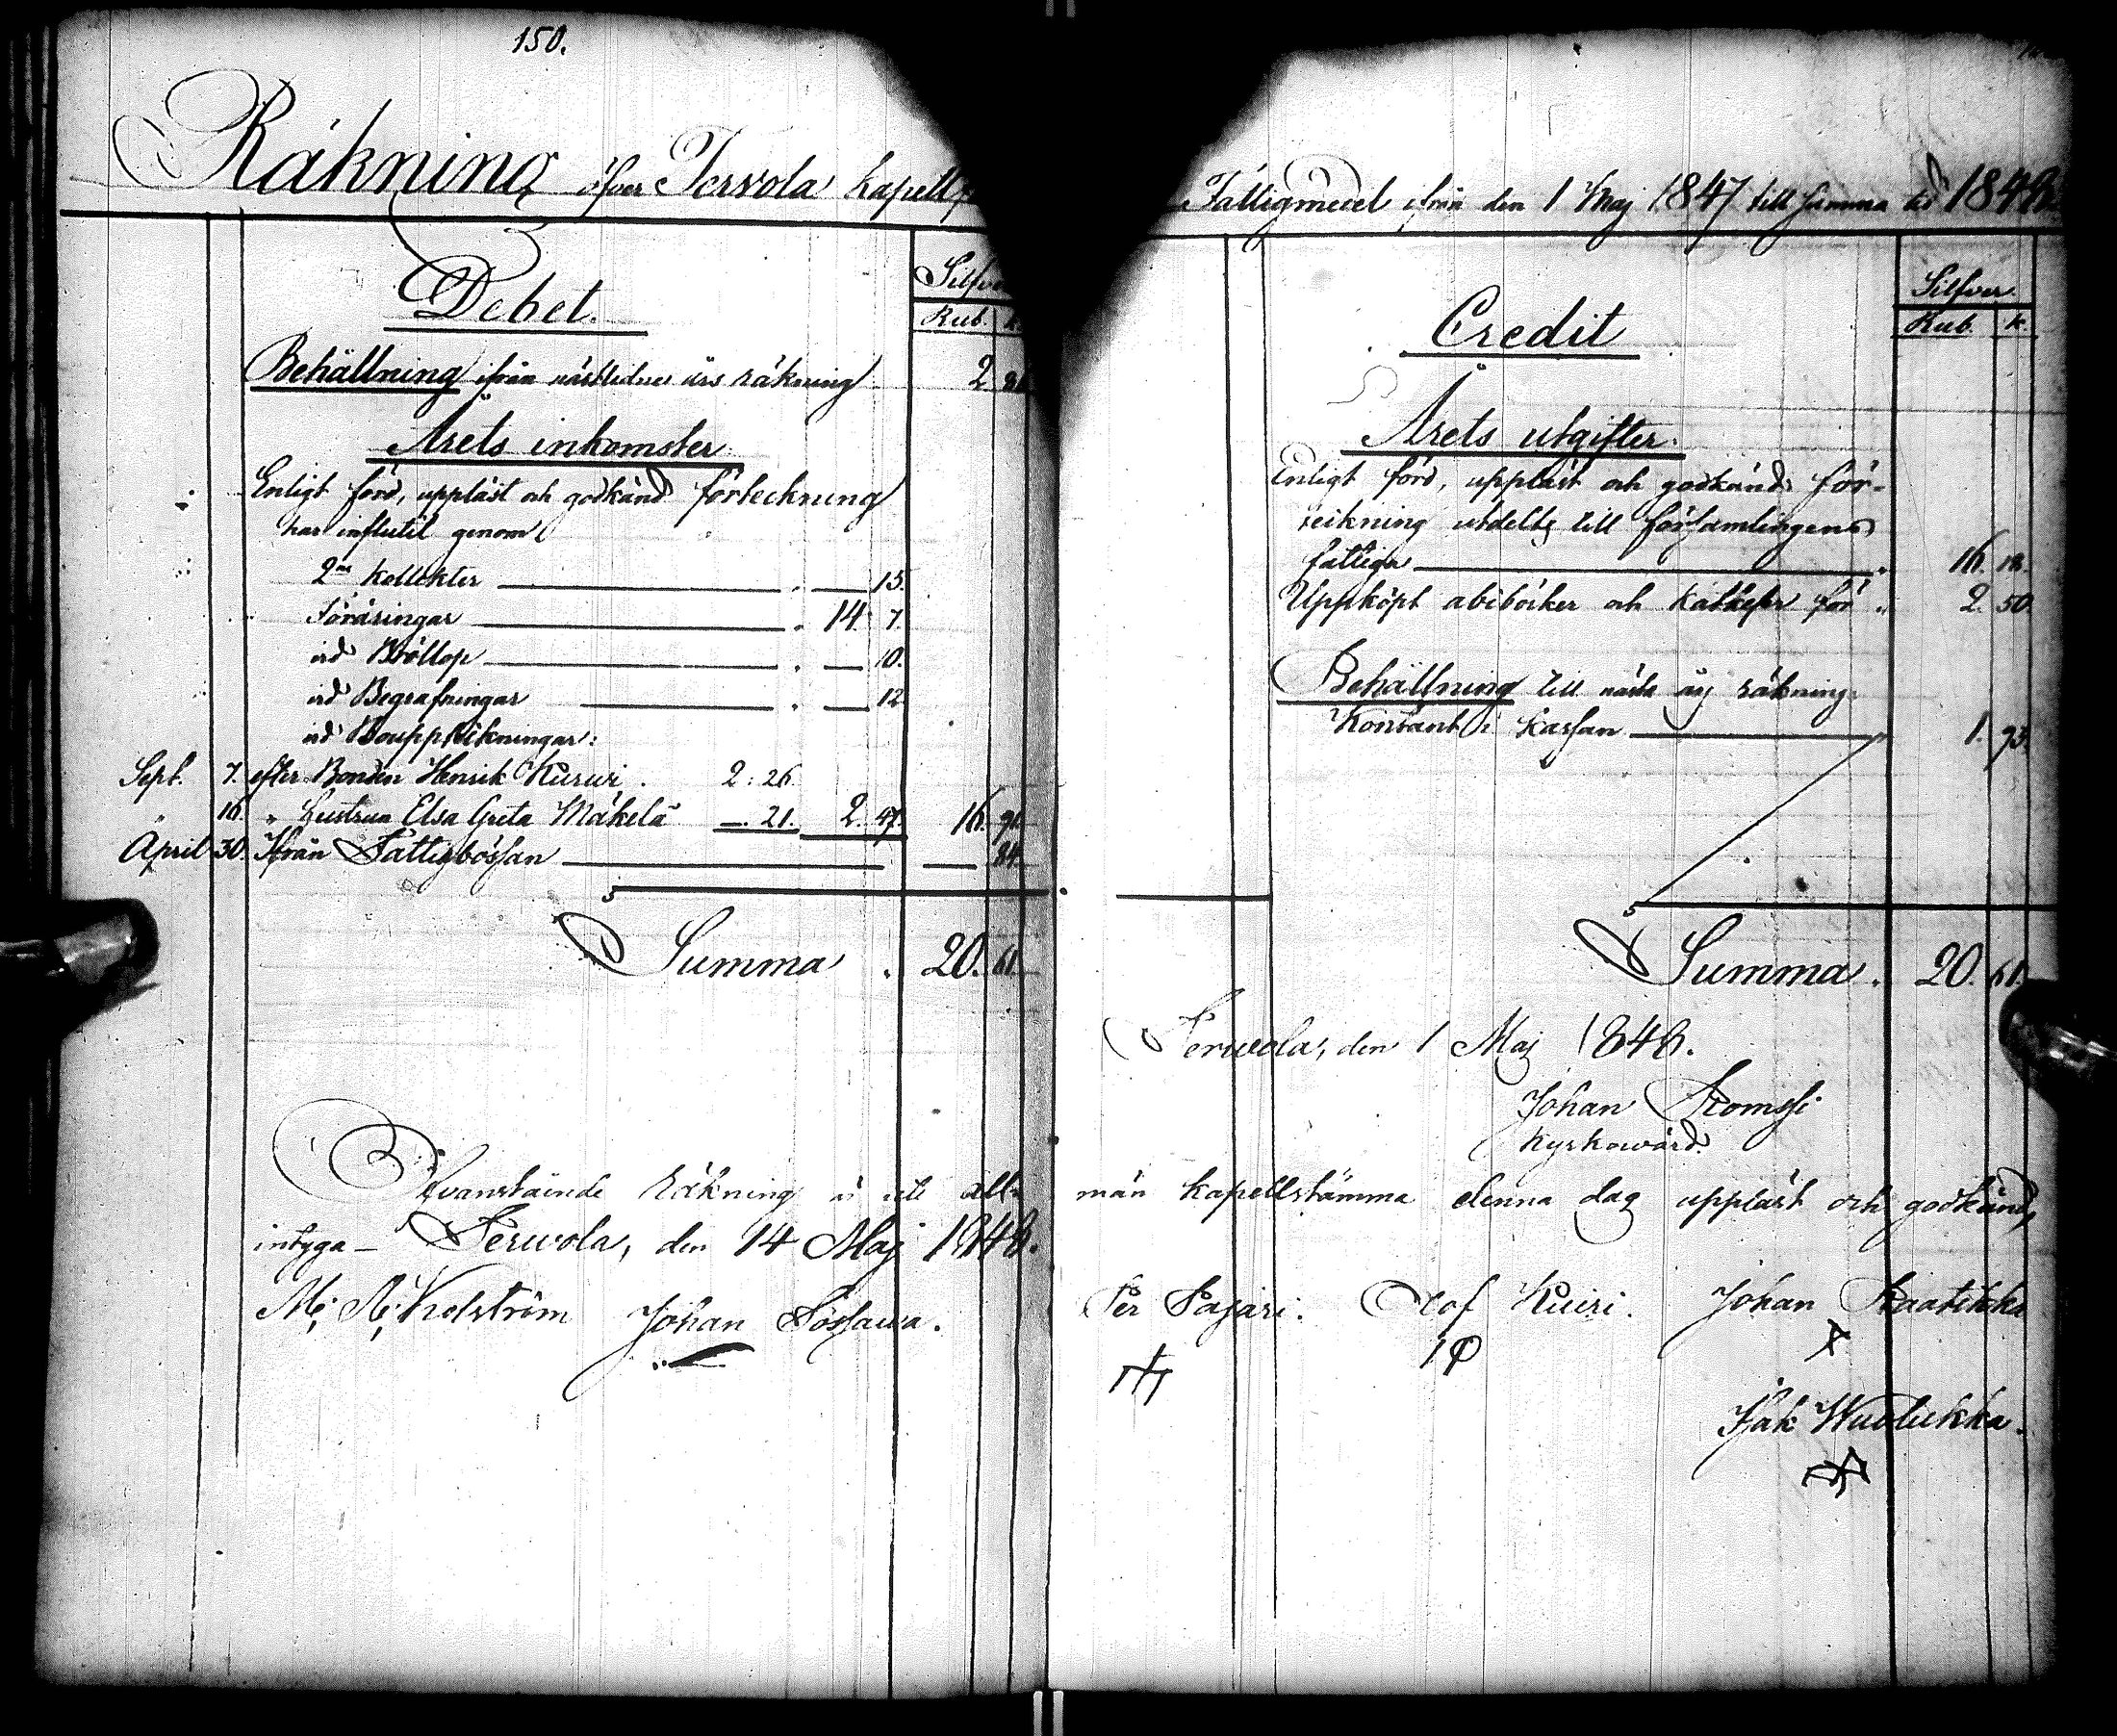 150.
Räkning öfver Tervola Kapell
Debet.
Silfver
Rub. k.
Behållning ifrån nästledne års räkning 2. 86
Årets inkomster
Enligt förd, uppläst och godkänd förteckning
har influtit genom
2ne Kollekter — . — 15.
Föräringar — . 14. 7.
vid Bröllop — . — 10.
vid Begrafningar — . — 12
vid Bouppteckningar:
Sept. 7. efter Bonden Henrik Kururi . 2: 26.
" 16. " Hustrun Elsa Greta Mäkelä —. 21. 2. 47. 16. 91.
April 30. Ifrån Fattigbössan — — 84.
Summa . 20. 61.
Ofvanstående räkning är uti all-
intyga — Terwola, den 14 Maj 1848.
Johan
Fattigmedel ifrån den 1 Maj 1847 till samma tid 1848
Credit
Silfver.
Rub. k.
Årets utgifter.
Enligt förd, uppläst och godkänd för-
teckning utdelts till församlingens
fattiga — . 16. 18.
Uppköpt abcböcker och Katkeser för " 2. 50
Behållning till nästa års räkning.
Kontant i Kassan — " 1. 93.
Summa . 20. 61.
Terwola, den 1 Maj 1848.
Johan Romssi
Kyrkowärd.
män Kapellstämma denna dag uppläst och godkänd,
Per Pajari. Olof Kuiri. Johan Raatikka
Jak Wuolukka.